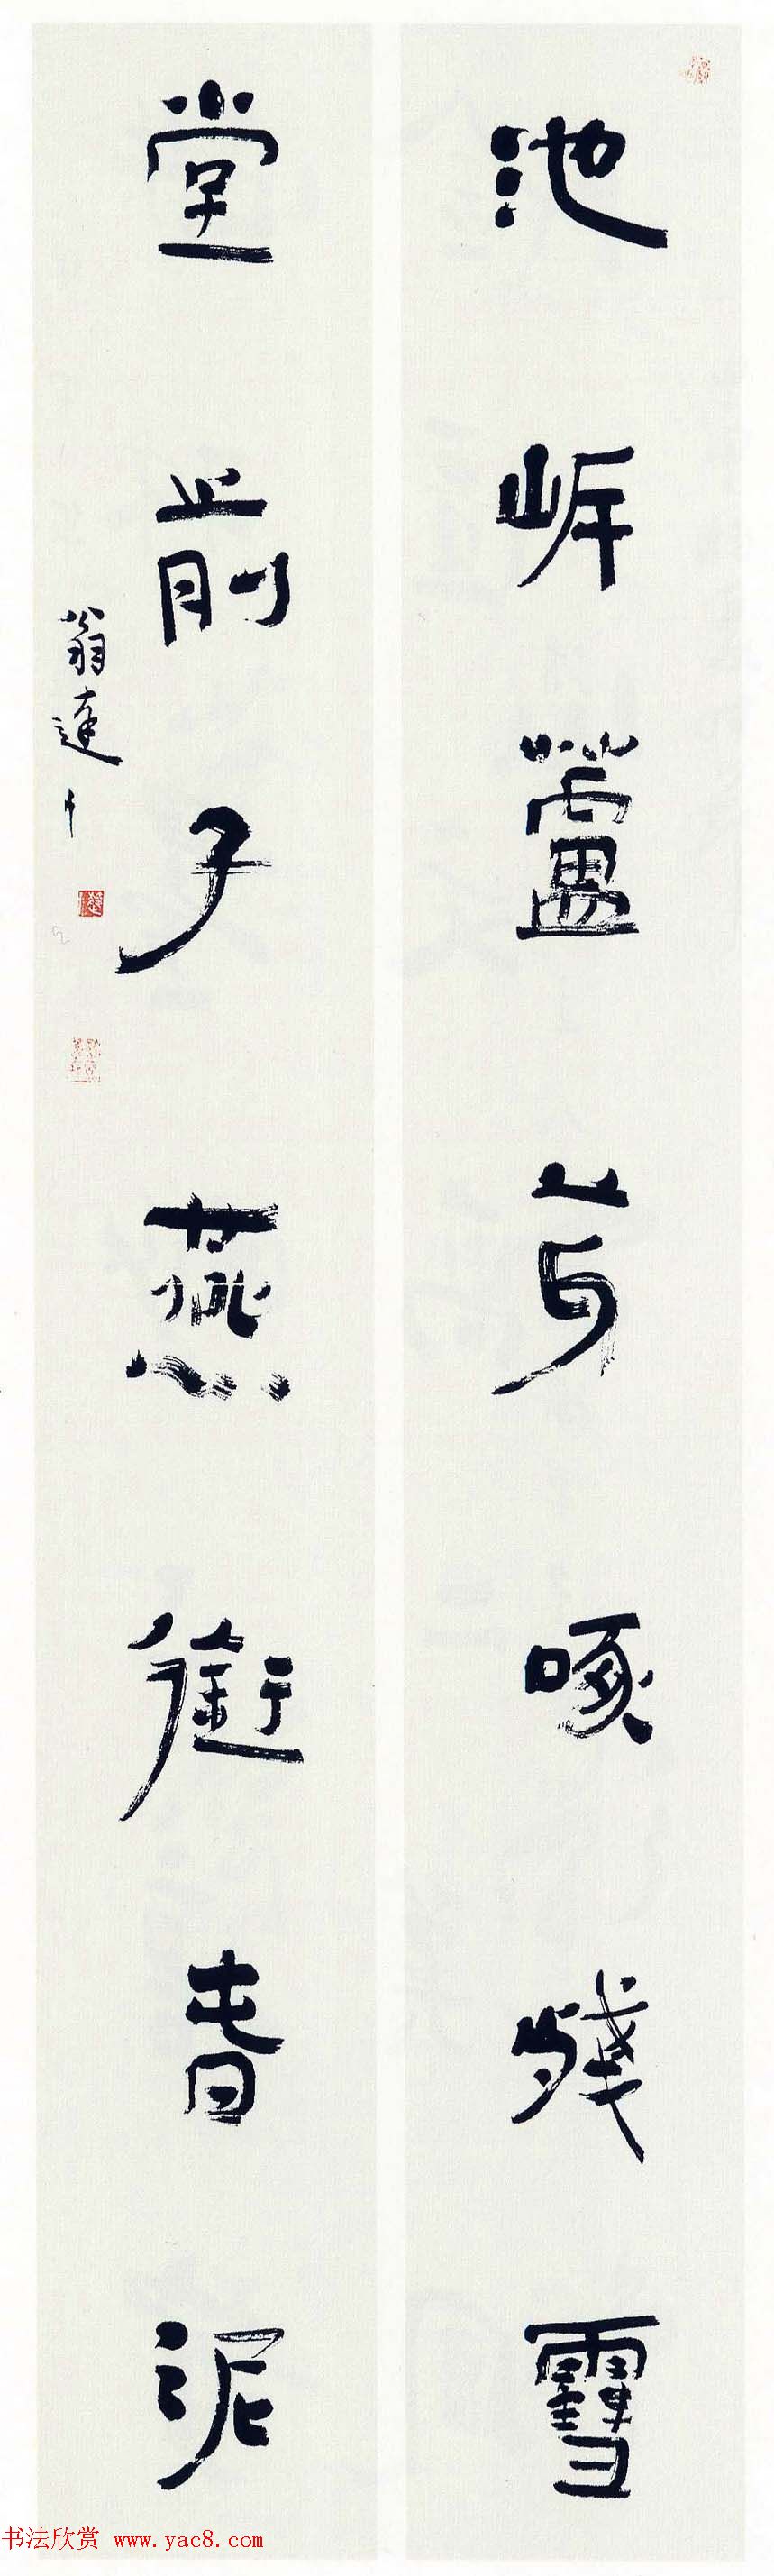 池岸蘆芽啄殘雪
堂前子燕銜春泥
翁達
书法欣赏 www.yac8.com